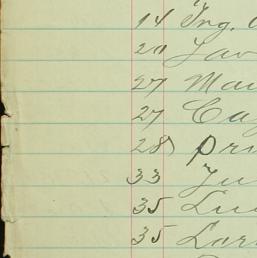 14 Ing.
20 Jav
27 Mau
27 Cay
28 Pri
33 Ju
35 Lu
35 Lar